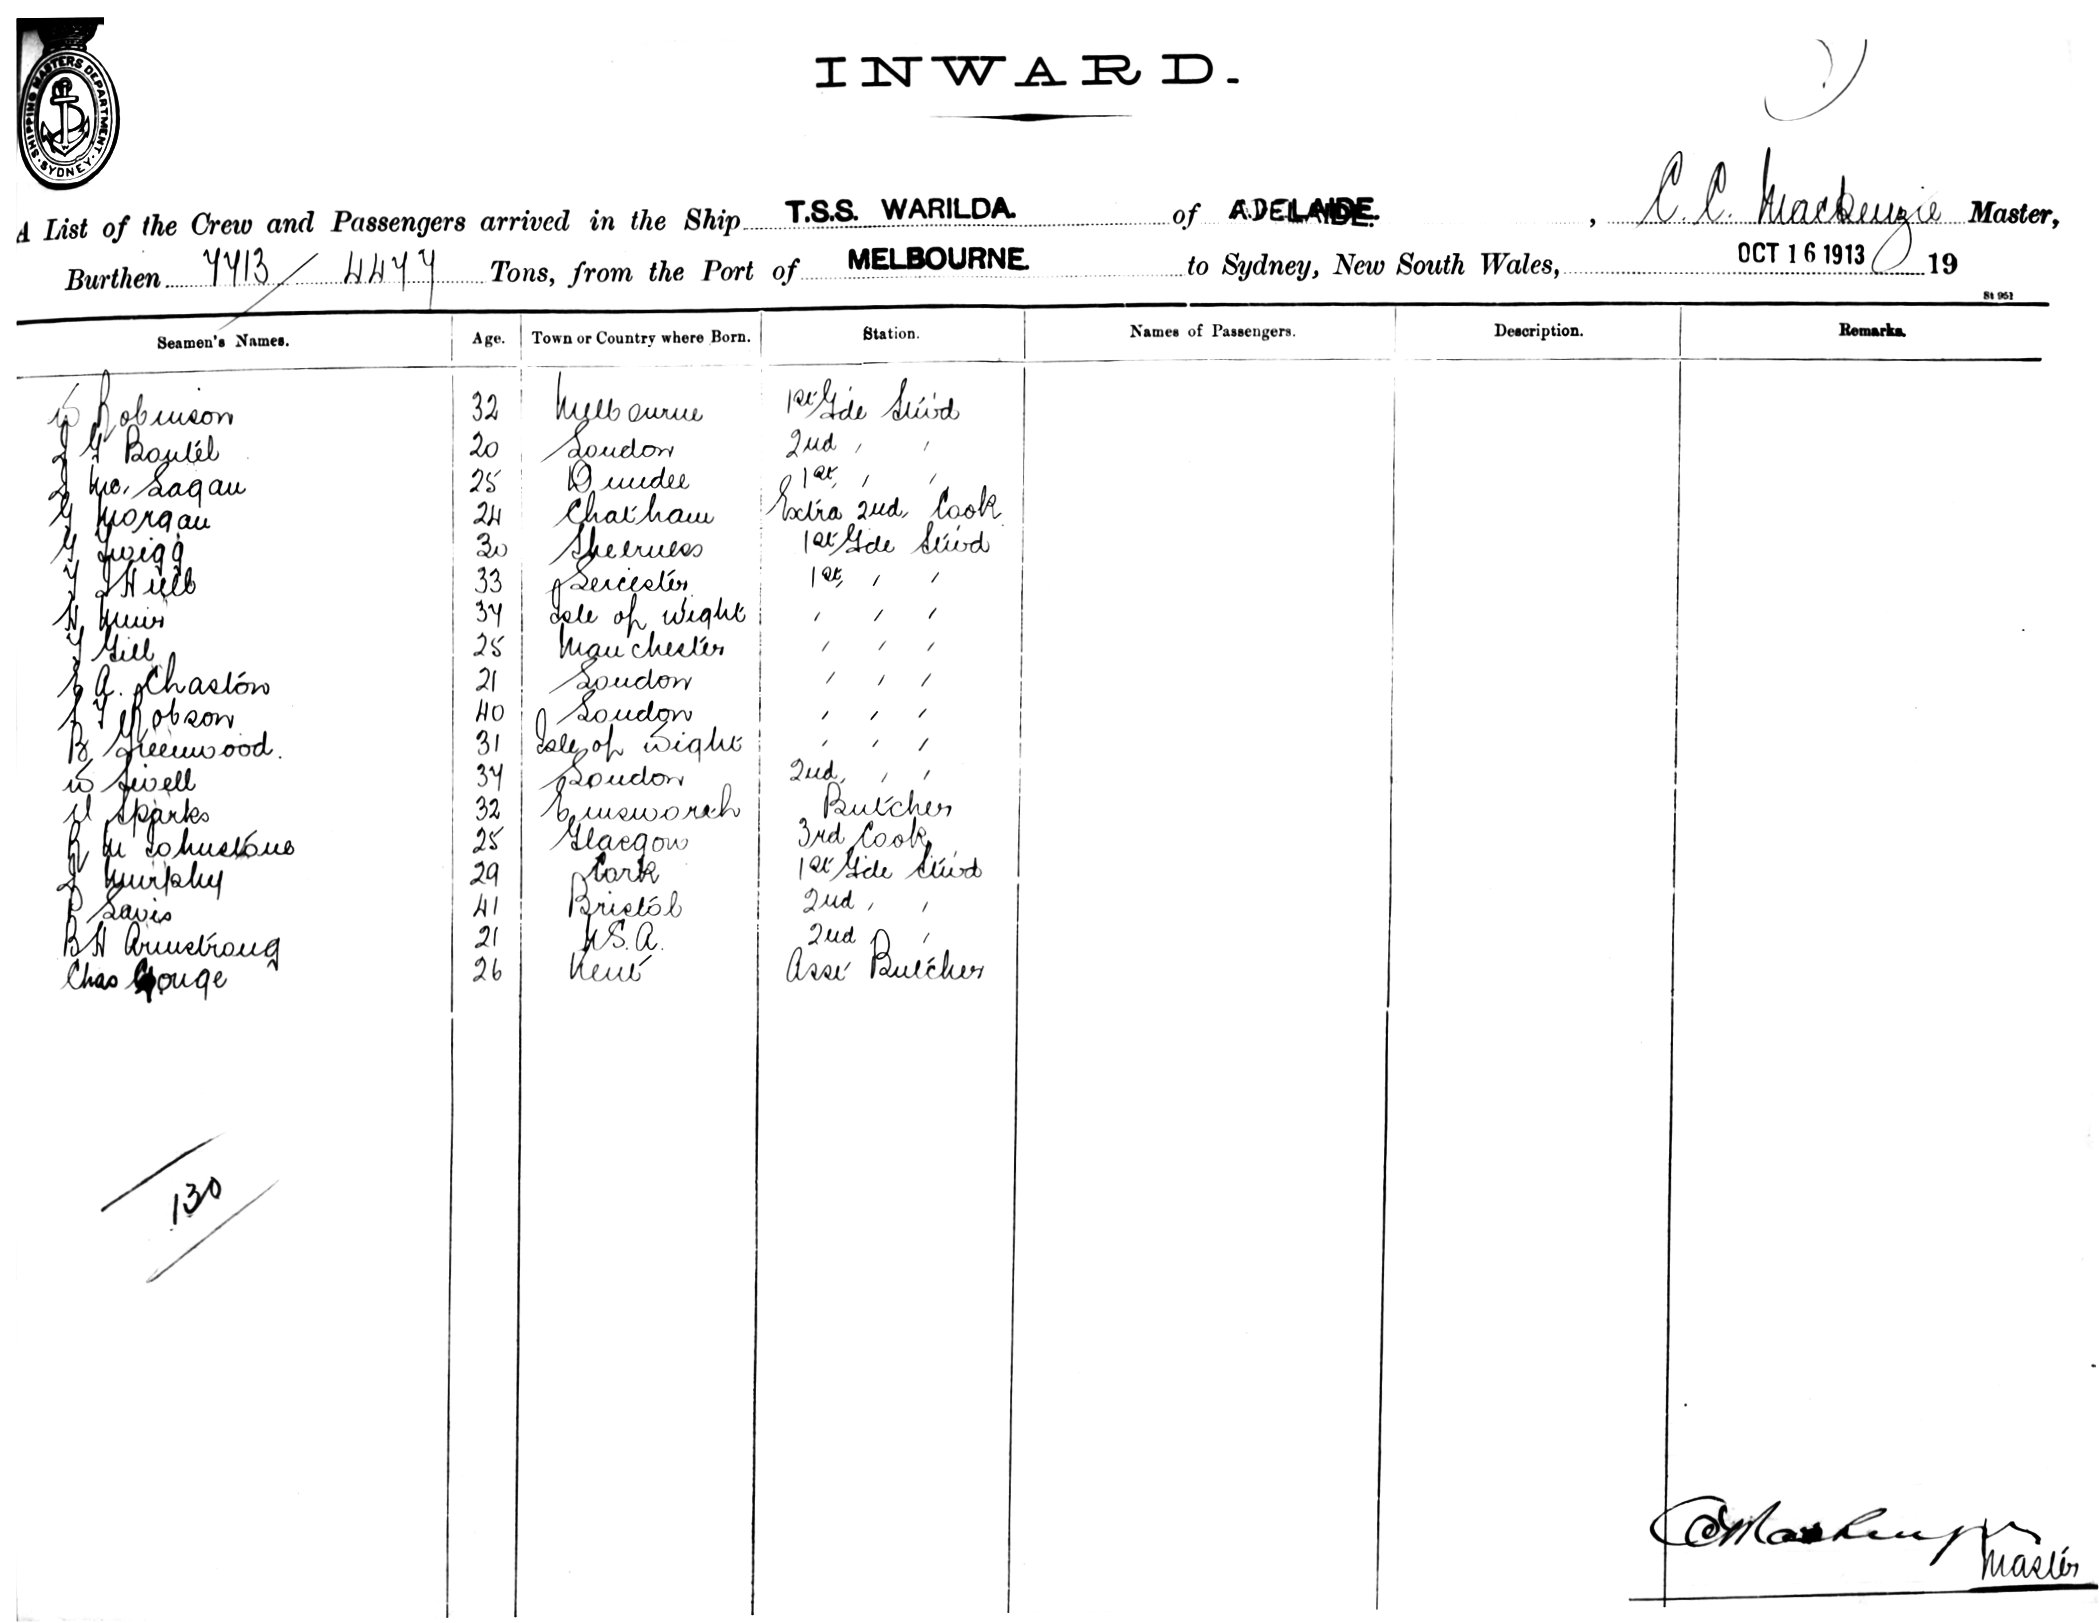 SHIPPING MASTERS DEPARTMENT. SYDNEY
INWARD.
A List of the Crew and Passengers arrived in the Ship T.S.S. WARILDA. of ADELAIDE. , C. C. Mackenzie Master,
Burthen 7713 / 4477 Tons, from the Port of MELBOURNE to Sydney, New South Wales, OCT 16 1913 19
St 951
Seamen's Names. Age. Town or Country where Born. Station. Names of Passengers. Description. Remarks.
W Robinson 32 Melbourne 1st Gde Stwd
J G Bontél 20 London 2nd , ,
J Mc. Lagan 25 Dundee 1st , ,
G Morgan 24 Chatham Extra 2nd Cook
G Twigg 30 Sheerness 1st Gde Stwd
33 Leicester 1st , ,
H Muir 37 Isle of Wight , , ,
F Gill 25 Manchester , , ,
E A. Chaston 21 London , , ,
Robson 40 London , , ,
B Greenwood. 31 Isle of Wight , , ,
W Sivell 37 London 2nd , ,
Sparks 32 Emsworth Butcher
R M Johnstone 25 Glasgow 3rd Cook
J Murphy 29 Cork 1st Gde Stwd
41 Bristol 2nd , ,
B H Armstrong 21 U.S.A. 2nd , ,
Chas Gouge 26 Kent Asst Butcher
130
CC Mackenzie
Master